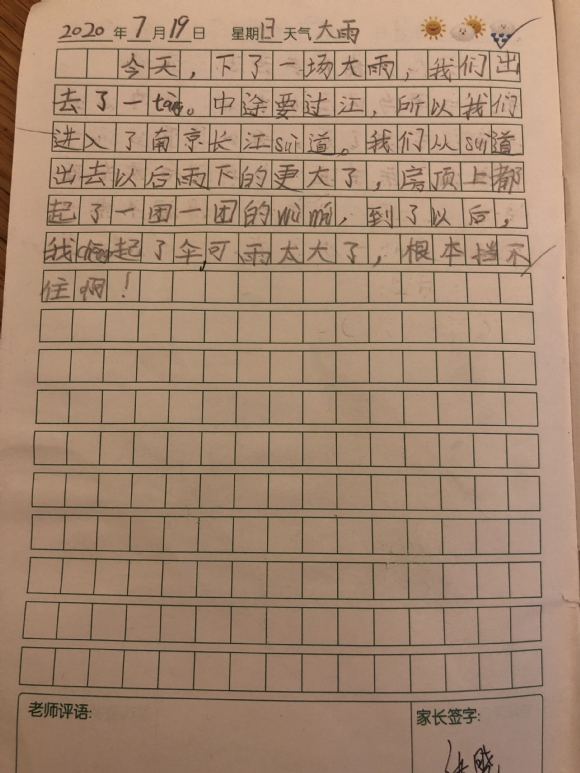 2020年7月19日 星期日天气大雨
今天，下了一场大雨，我们出
去了一tàng。中途要过江，所以我们
进入了南京长江suì道。我们从suì道
出去以后雨下的更大了，房顶上都
起了一团一团的，到了以后，
我chēng起了伞，可雨太大了，根本挡不
住啊！
老师评语: 家长签字: